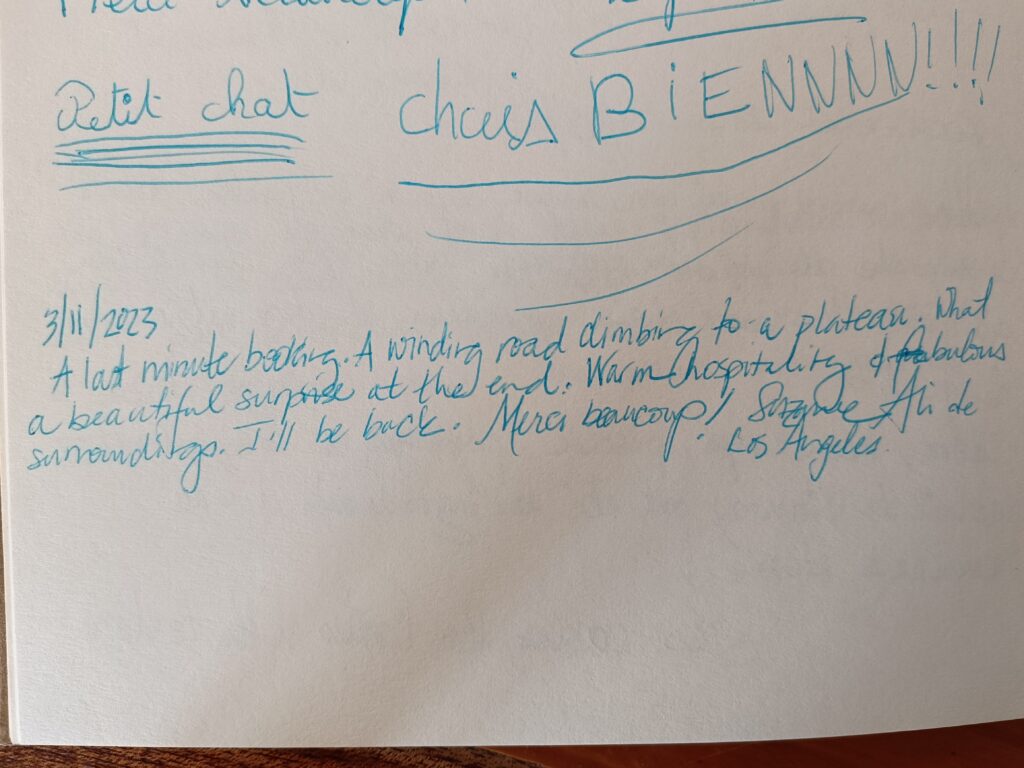 Petit chat chuis BiENNNN!!!!
3/11/2023
A last minute booking. A winding road climbing to a plateau. What
a beautiful surprise at the end. Warm hospitality & fabulous
surroundings. I'll be back. Merci beaucoup! Suzanne Ali de
Los Angeles.